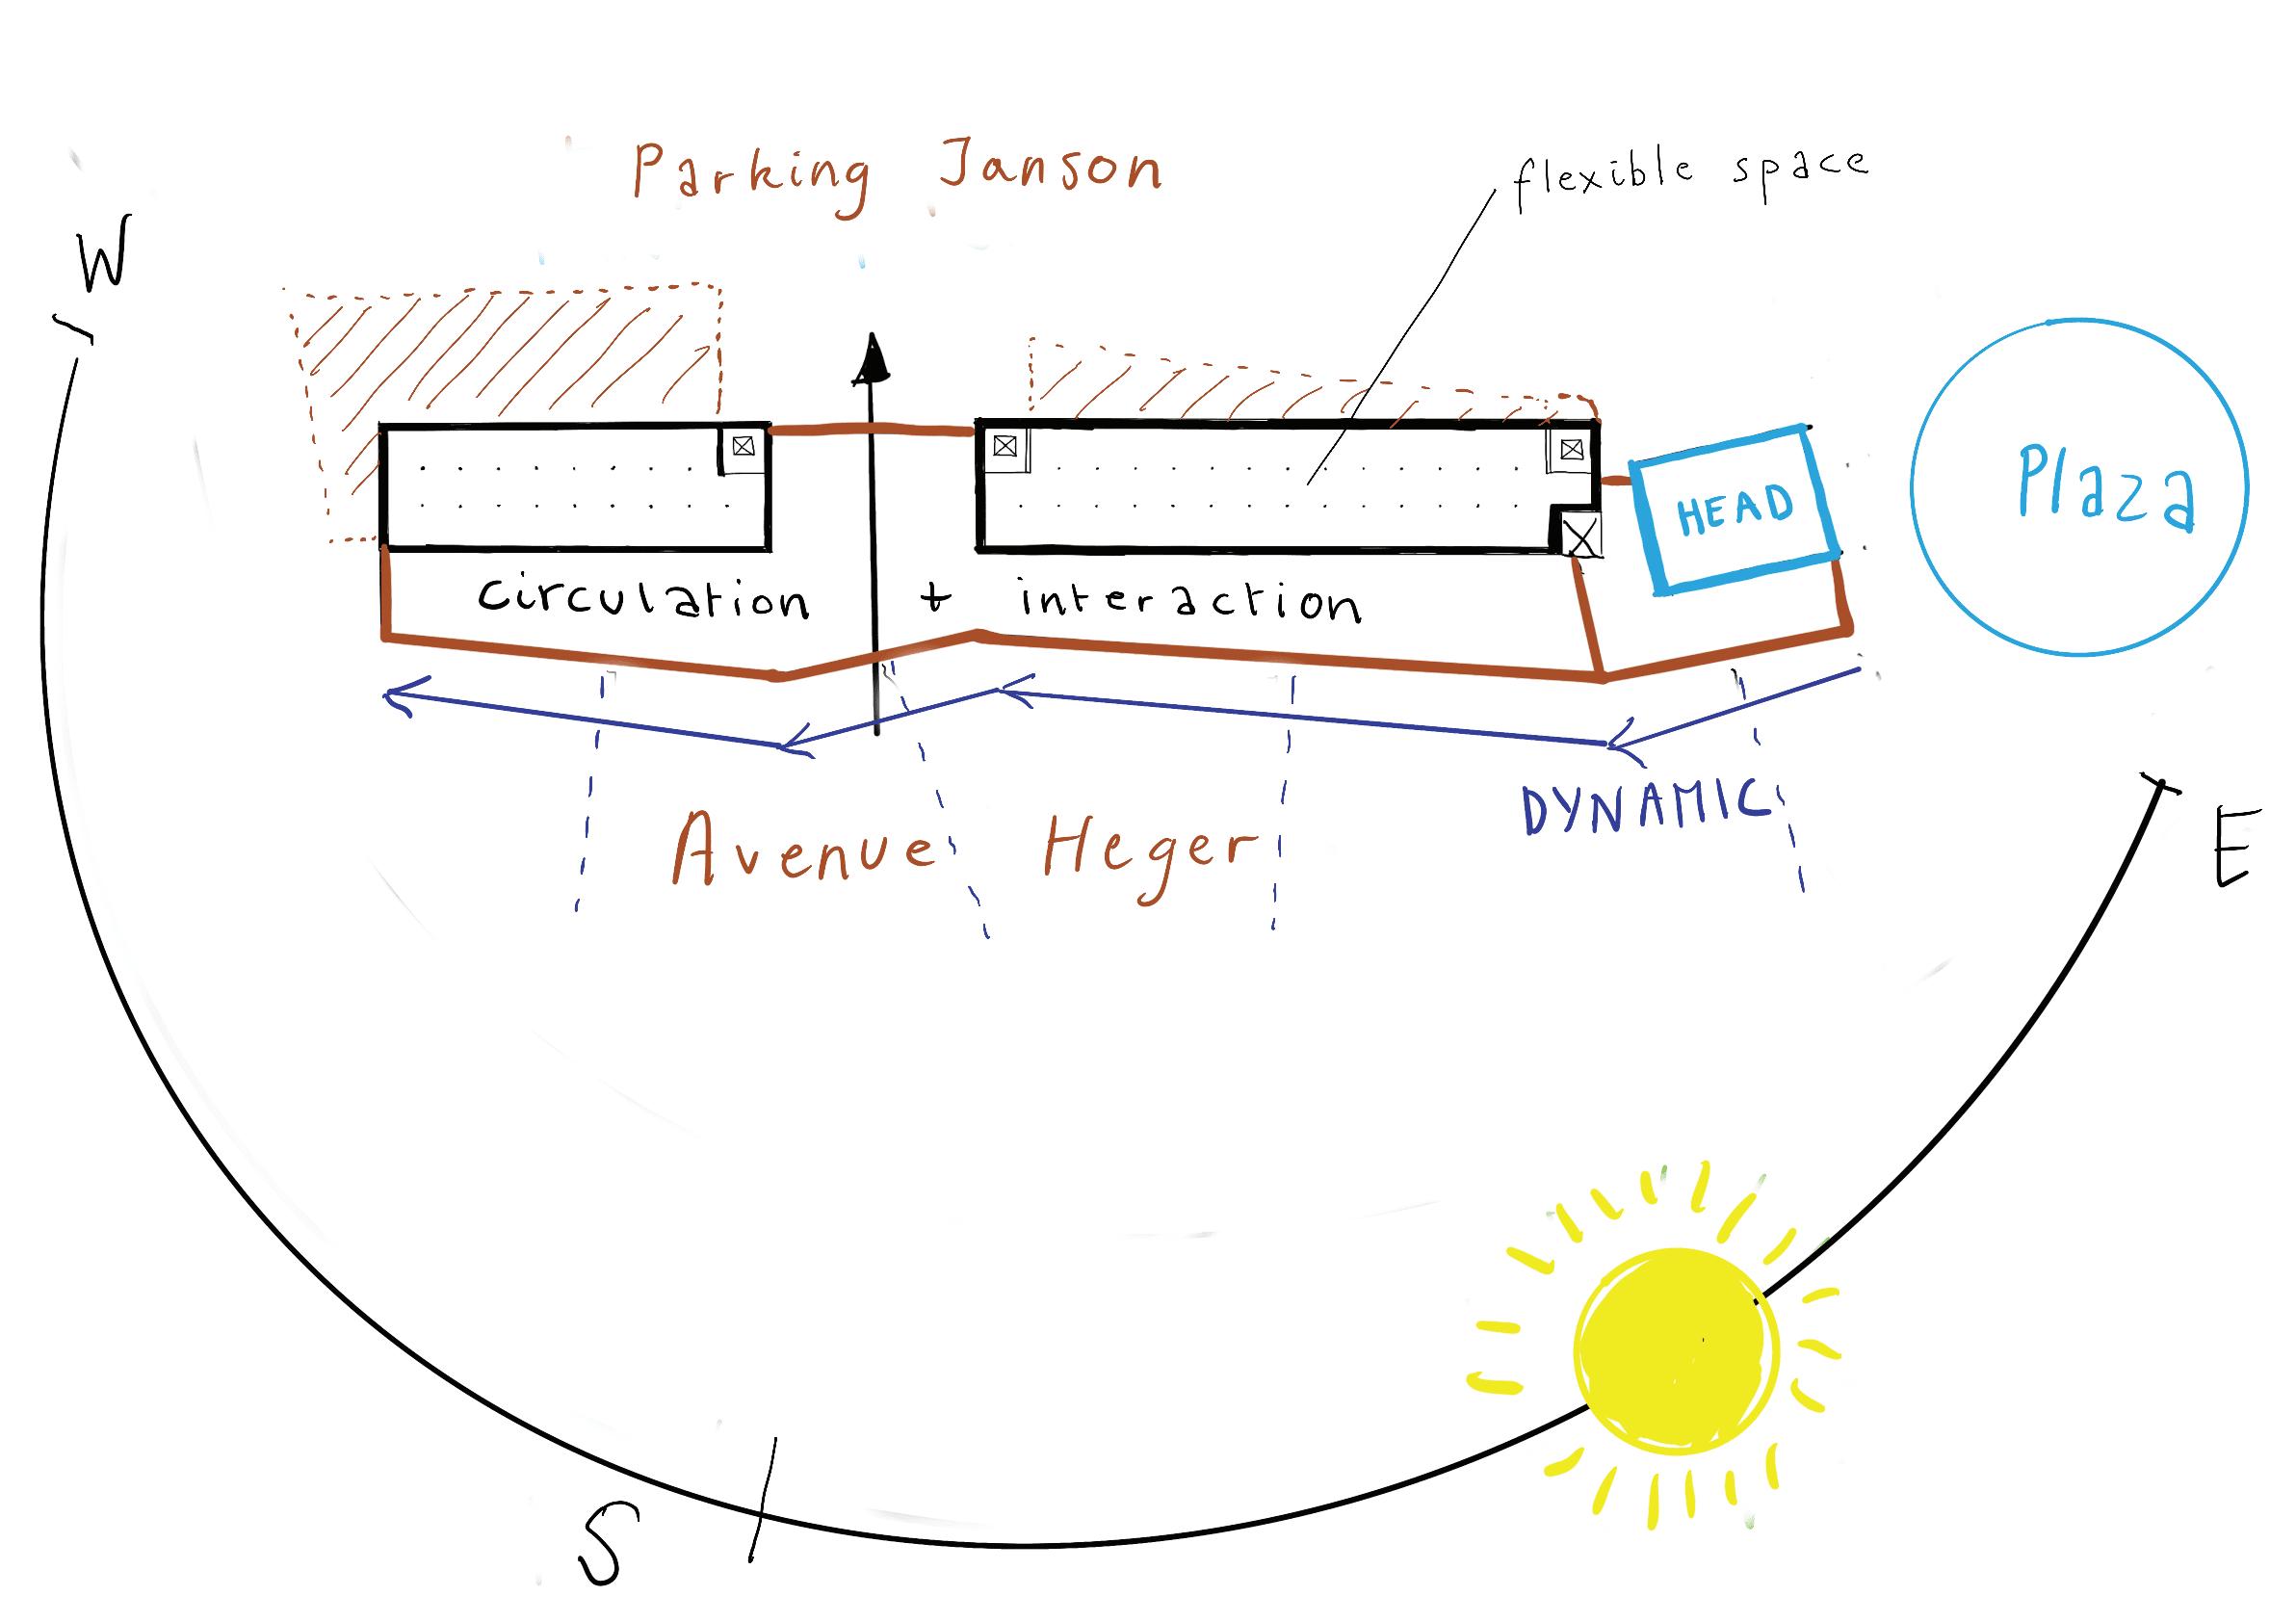 Parking Janson
flexible space
W
HEAD
Plaza
circulation + interaction
DYNAMIC
Avenue Heger
E
S